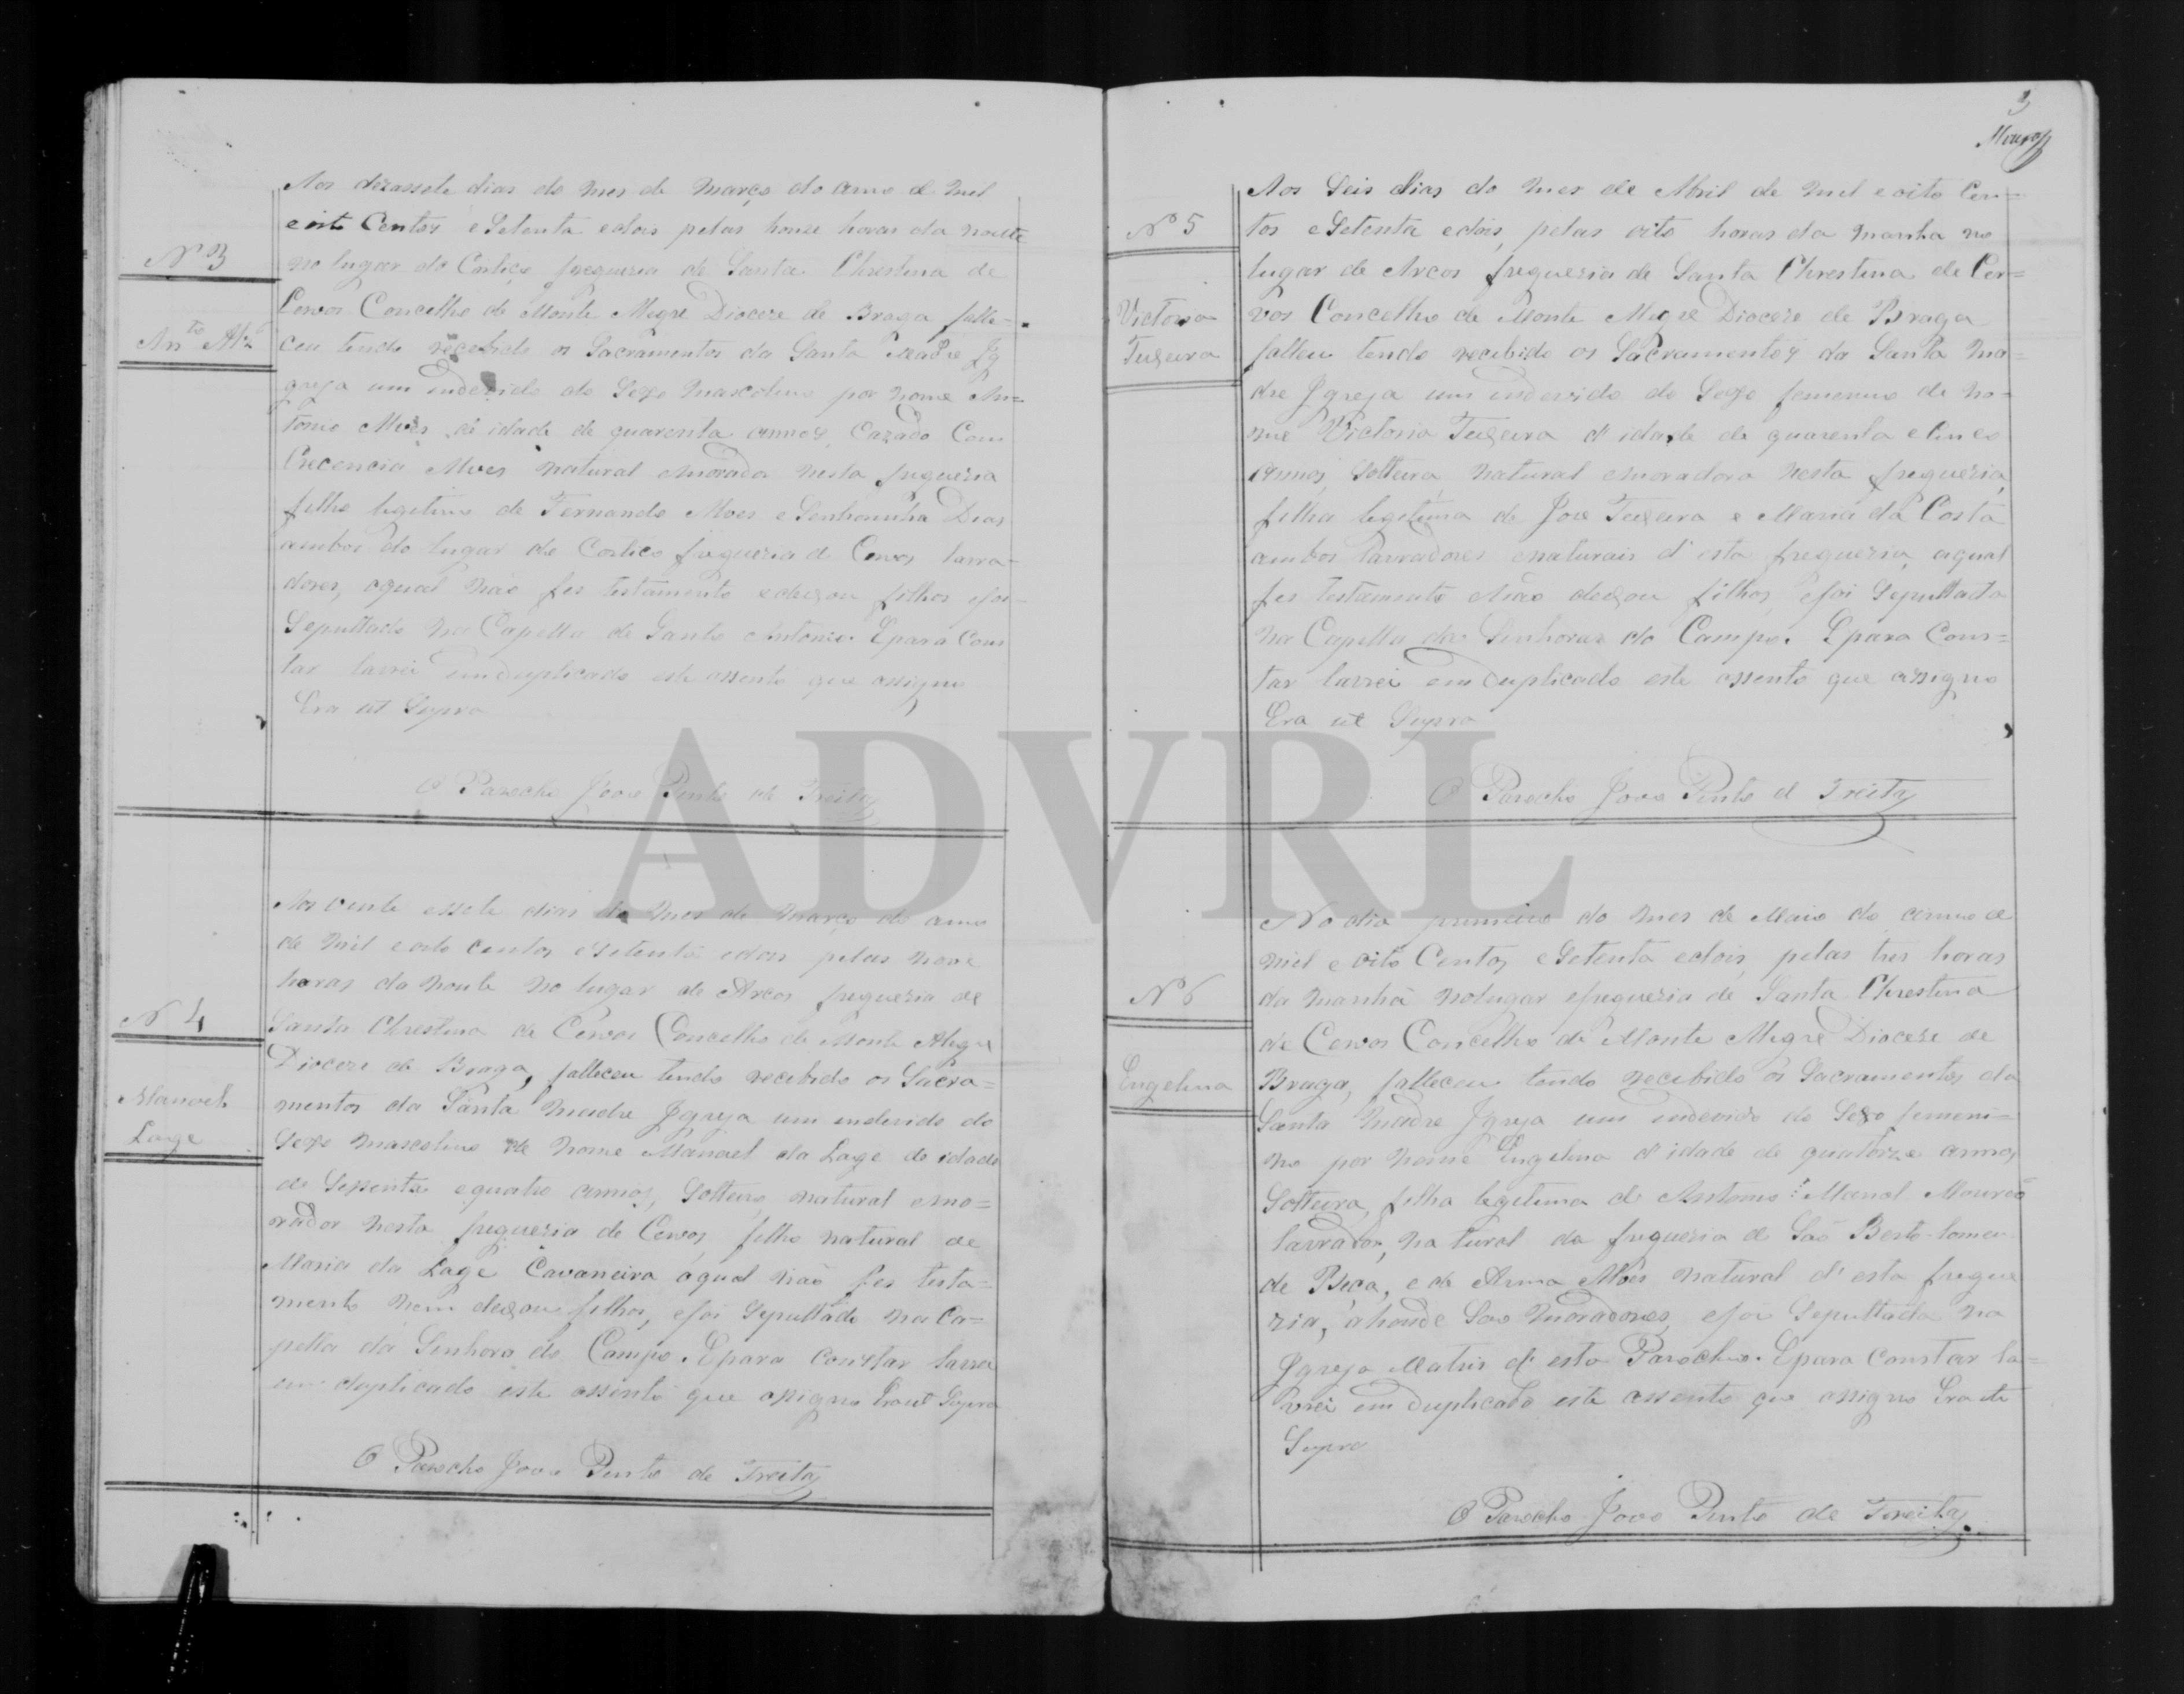 Nº 3
Anto Alz
Aos dezassete dias do mes de março do anno de mil
e oito Centos e Setenta e dois pelas honze horas da noute
no lugar do Cortiço freguezia de Santa Chrestina de
Cervos Concelho de Monte Alegre Dioceze de Braga falle-
ceu tendo recebido os Sacramentos da Santa Madre Ig
greja um endevido do Sexo mascolino por nome An=
tonio Alves de idade de quarenta annos, Cazado Com
Crecencia Alves natural emorador nesta freguezia
filho legitimo de Fernando Alves e Senhorinha Dias
ambos do lugar do Cortiço freguezia de Cervos lavra-
dores, oqual não fes testamento edeixou filhos efoi
Sepultado na Capella de Santo Antonio. Epara Cons
tar lavrei emduplicado este assento que assigno
Era ut Supra
O Parocho João Pinto de Freitas
Nº 4
Manoel
Lage
Aos vinte essete dias do mes de março do anno
de mil e oito centos esetenta edois pelas nove
horas da noute no lugar de Arcos freguezia de
Santa Chrestina de Cervos Concelho de Monte Alegre
Dioceze de Braga, falleceu tendo recebido os Sacra=
mentos da Santa Madre Igreja um endevido do
Sexo mascolino de nome Manoel da Lage de idade
de Sessenta equatro annos, Solteiro, natural emo=
rador nesta freguezia de Cervos, filho natural de
Maria da Lage Cavaneira oqual não fes testa=
mento nem deixou filhos, efoi Sepultado na Ca=
pella da Senhora do Campo. Epara constar lavrei
em duplicado este assento que assigno Era ut Supra
O Parocho João Pinto de Freitas
3
Nº 5
Victoria
Teixeira
Aos Seis dias do mes de Abril de mil e oito Cen=
tos eSetenta edois, pelas oito horas da manha no
lugar de Arcos freguezia de Santa Chrestina de Cer=
vos Concelho de Monte Alegre Dioceze de Braga
falleu tendo recebido os Sacramentos da Santa Ma=
dre Igreja um endevido do Sexo femenino de no=
me Victoria Teixeira d'idade de quarenta eCinco
annos, Solteira, natural emoradora nesta freguezia,
filha legitima de Joze Teixeira e Maria da Costa
ambos lavradores enaturais d'esta freguezia, aqual
fes testamento enão deixou filhos, efoi Sepultada
na Capella da Senhora do Campo. Epara Cons=
tar lavrei em Duplicado este assento que assigno
Era ut Supra
O Parocho João Pinto d Freitas
Nº 6
Engelina
No dia primeiro do mes de Maio do anno de
mil e oito Centos eSetenta edois, pelas tres horas
da manhã nolugar efreguezia de Santa Chrestina
de Cervos Concelho de Monte Alegre Diocese de
Braga, falleceu tendo recebido os Sacramentos da
Santa Madre Igreja um endevido do Sexo femeni=
no por nome Engelina d'idade de quatorze annos,
Solteira, filha legitima de Antonio Manoel Mourão
lavrador, natural da freguezia de São Berto-lomeu
de Beça, e de Anna Alves natural d'esta fregue
zia, ahonde São moradores, efoi Sepultada na
Igreja Matris d'esta Parochia. Epara constar la=
vrei em duplicado este assento que assigno Era ut
Supra
O Parocho João Pinto de Freitas
ADVRL